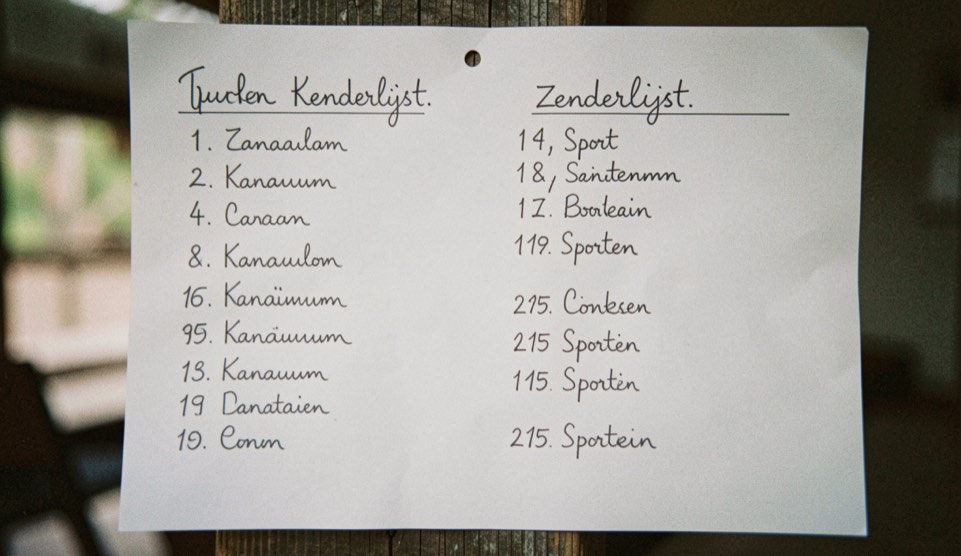 Kenderlijst.
1. Zanaaılam
2. Kanauum
4. Canaan
8. Kanauılom
16. Kanaïmum
95. Kanäuuum
13. Kanauum
19 Danataien
19. Conm
Zenderlijst.
14, Sport
18, Sanıtenmn
17. Boorteain
119. Sporten
215. Contesen
215 Sportėn
115. Sportėn
215. Sportein